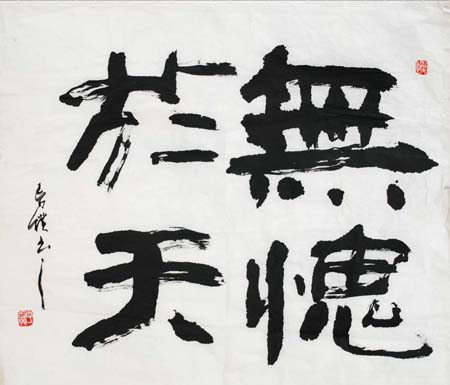 無愧
於天